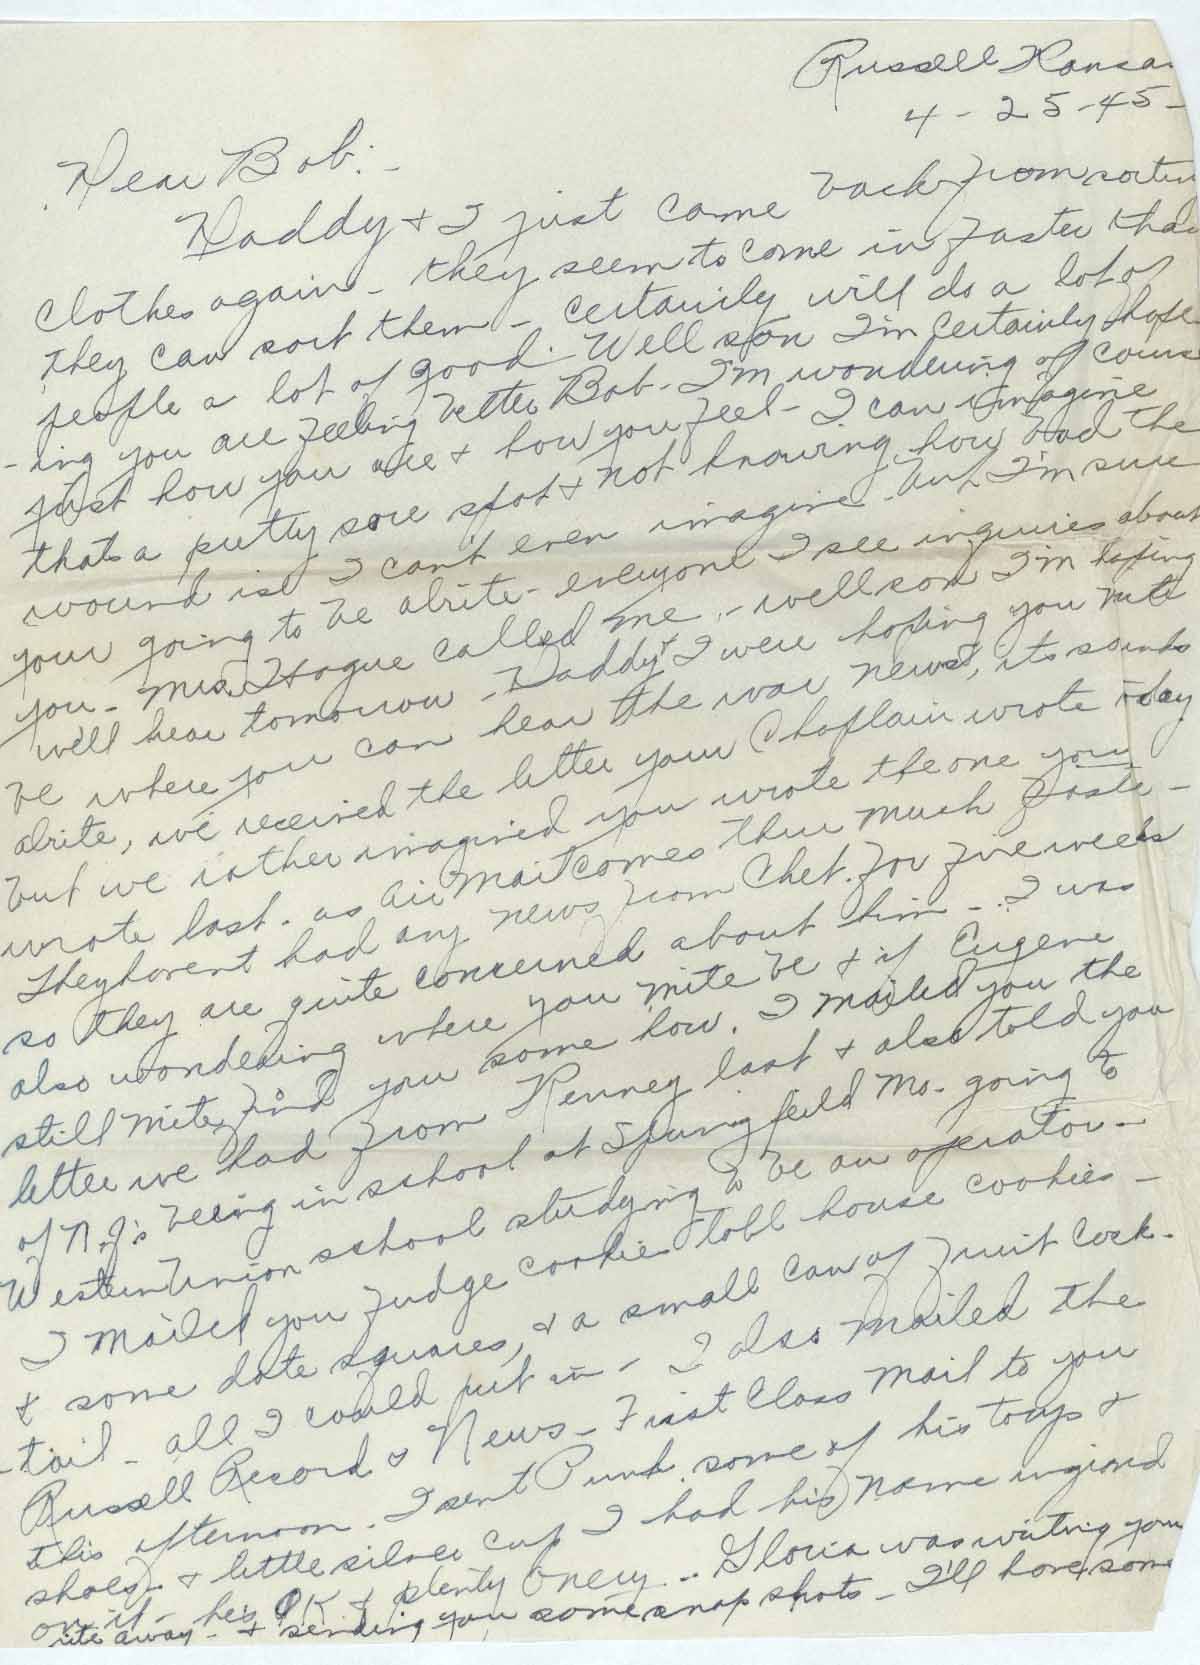 Russell Kansas
4-25-45-
Dear Bob:-
Daddy & I just came back from sorting
clothes again - they seem to come in faster than
they can sort them - certainly will do a lot of
people a lot of good - Well son I'm certainly hope
-ing you are feeling better Bob - I'm wondering of course
just how you are & how you feel - I can imagine
thats a pretty sore spot & not knowing how bad the
wound is I can't even imagine. But I'm sure
your going to be alrite - everyone I see inquires about
you - Mrs. Hogue called me - well son I'm hoping
we'll hear tomorrow - Daddy & I were hoping you mite
be where you can hear the war news, its sounds
alrite, we received the letter your Chaplain wrote today
but we rather imagined you wrote the one you
wrote last. as Air Mail comes thru much faste-
They havent had any news from Chet. for five weeks
so they are quite concerned about him - I was
also wondering where you mite be & if Eugene
still mite find you some how. I mailed you the
letter we had from Kenney last & also told you
of N.J.'s being in school at Springfeild Mo. going to
Western Union school studying to be an operator -
I mailed you fudge cookies toll house cookies -
& some date squares, & a small can of fruit cock-
-tail - all I could put in - I also mailed the
Russell Record & News - First Class mail to you
this afternoon. I sent Punk some of his toys &
shoes - & little silver cup I had his name ingraved
on it - he's OK & plenty onery - Gloria was writing you
rite away - & sending you some snap shots - I'll have some